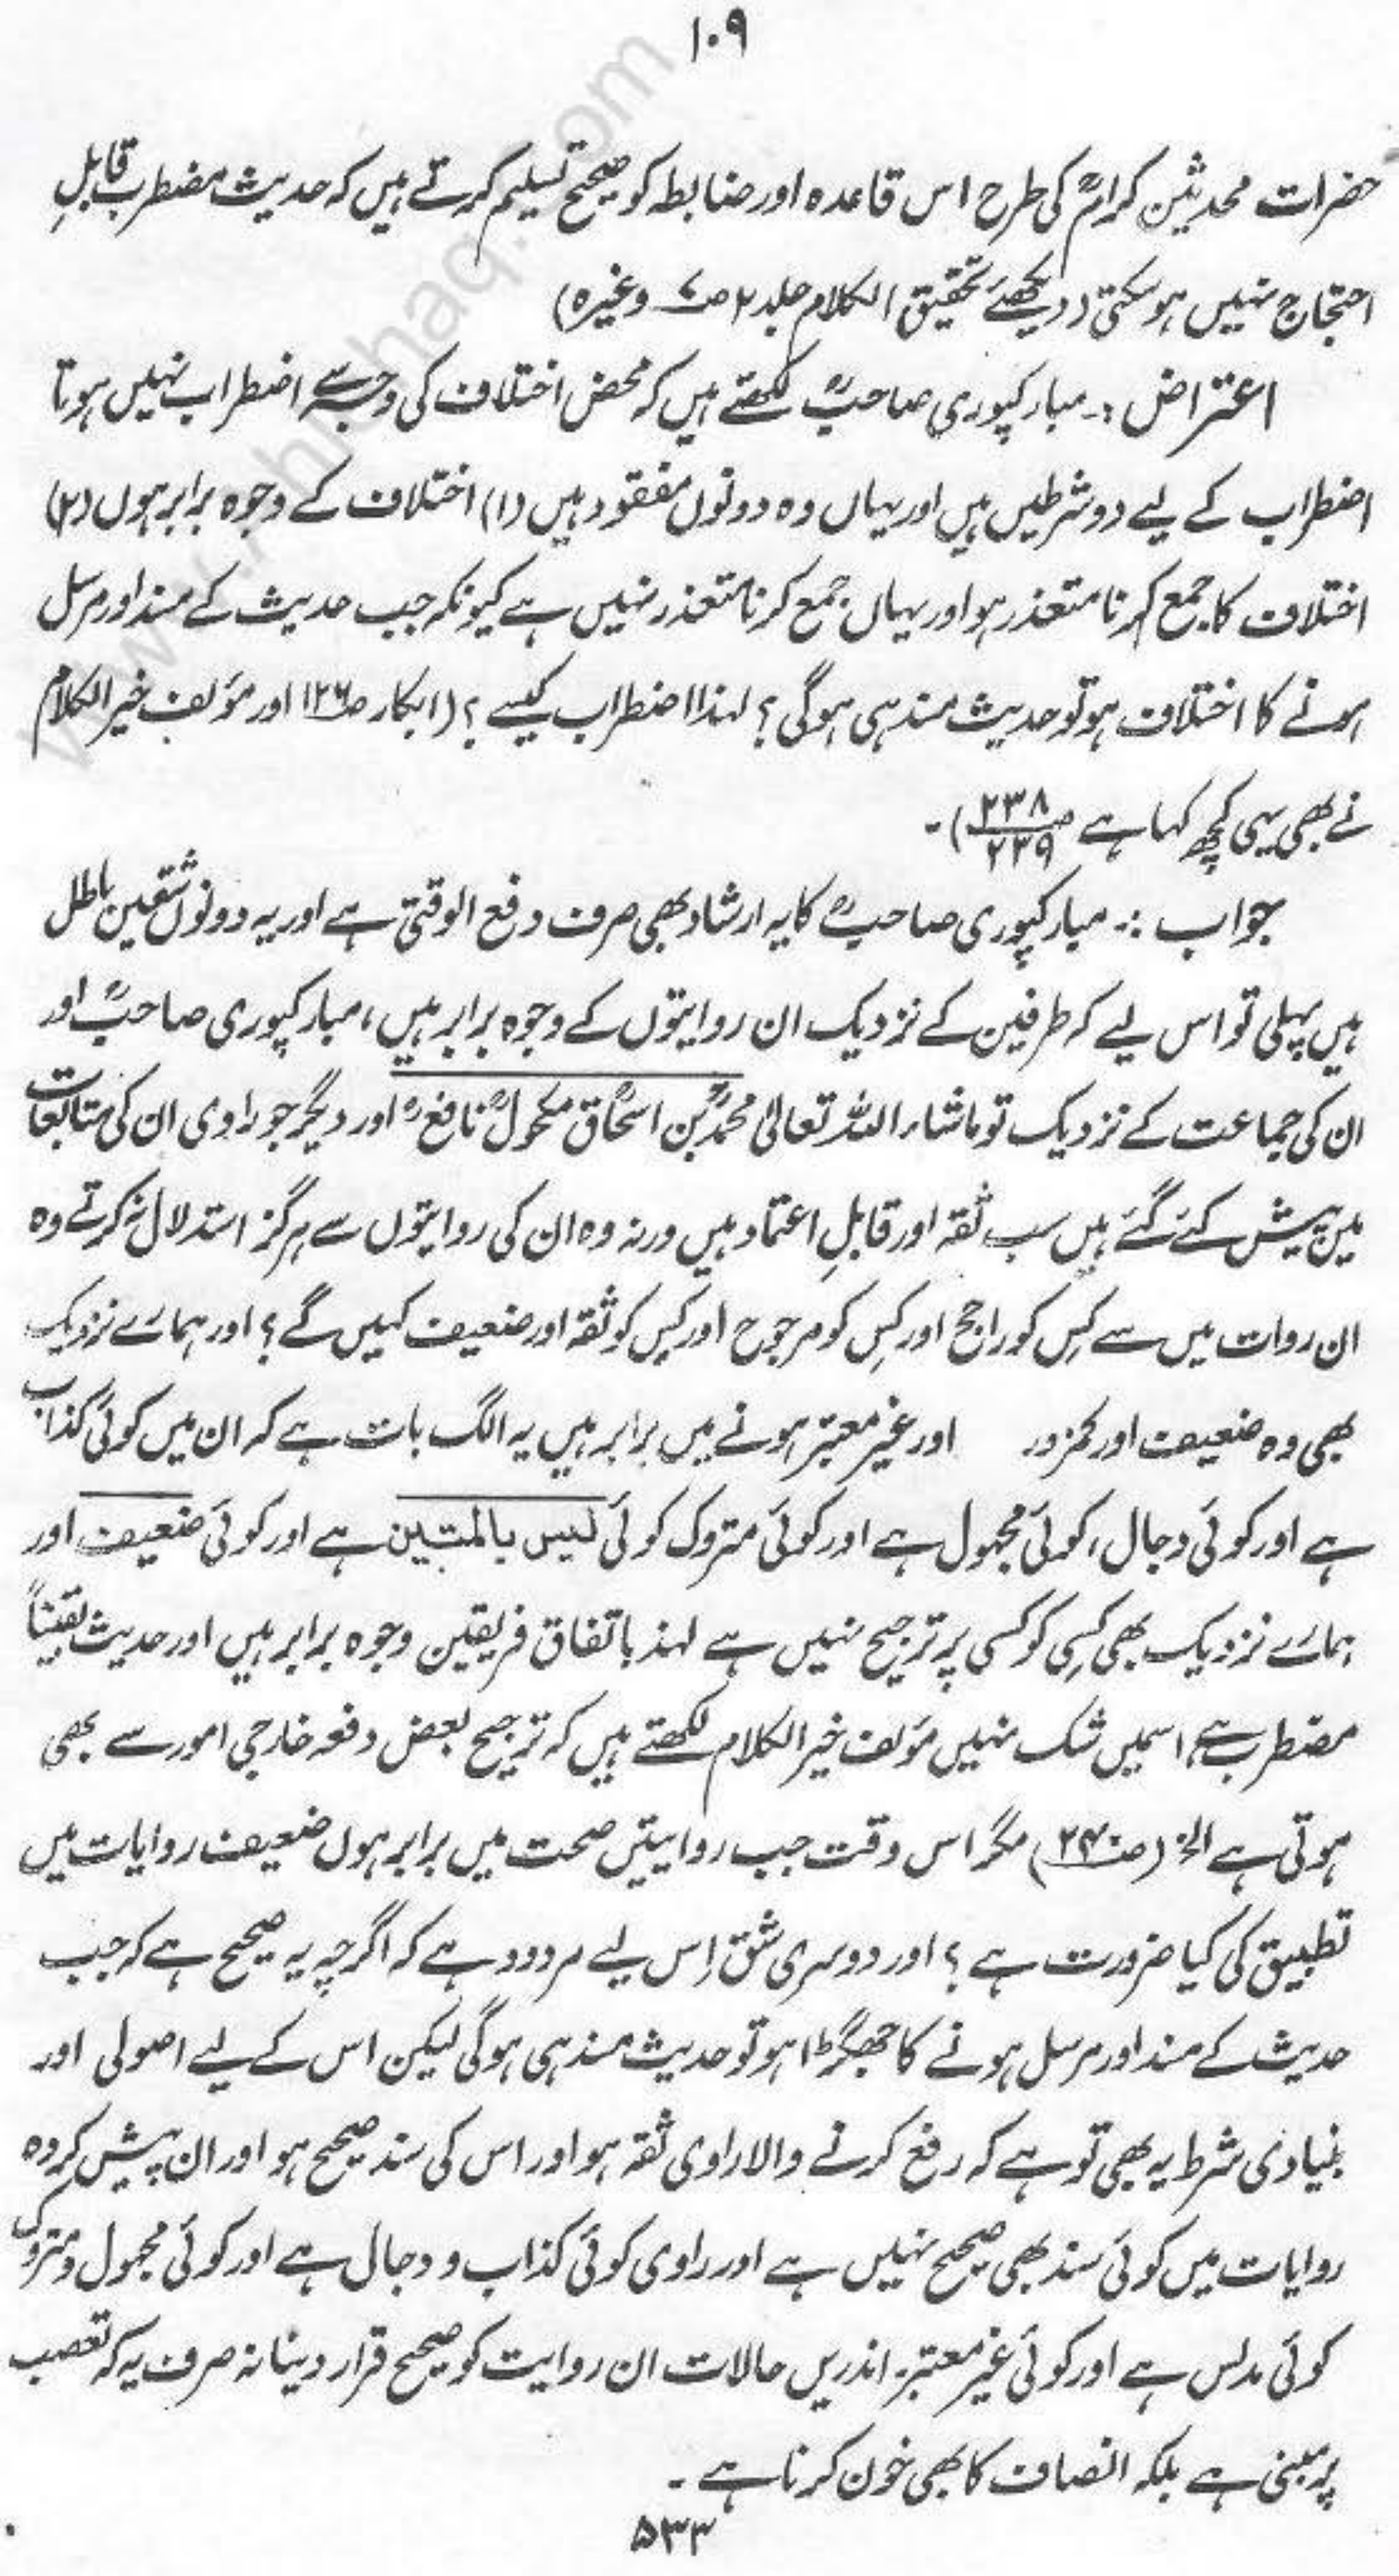 ۱۰۹
حضرات محدثین کرامؒ کی طرح اس قاعدہ اور ضابطہ کو صحیح تسلیم کرتے ہیں کہ حدیث مضطرب قابلِ
احتجاج نہیں ہو سکتی (دیکھئے تحقیق الکلام جلد ۲ ص۷ وغیرہ)
اعتراض :۔ مبارکپوری صاحبؒ لکھتے ہیں کہ محض اختلاف کی وجہ سے اضطراب نہیں ہوتا
اضطراب کے لیے دو شرطیں ہیں اور یہاں وہ دونوں مفقود ہیں (۱) اختلاف کے وجوہ برابر ہوں (۲)
اختلاف کا جمع کرنا متعذر ہو اور یہاں جمع کرنا متعذر نہیں ہے کیونکہ جب حدیث کے مسند اور مرسل
ہونے کا اختلاف ہو تو حدیث مسند ہی ہوگی؟ لہٰذا اضطراب کیسے؟ (ابکار ص۱۲۶ اور مؤلف خیر الکلام
نے بھی یہی کچھ کہا ہے ص۲۳۸ ۲۳۹)۔
جواب :۔ مبارکپوری صاحبؒ کا یہ ارشاد بھی صرف دفع الوقتی ہے اور یہ دونوں شقین باطل
ہیں پہلی تو اس لیے کہ طرفین کے نزدیک ان روایتوں کے وجوہ برابر ہیں، مبارکپوری صاحبؒ اور
ان کی جماعت کے نزدیک تو ماشاء اللہ تعالیٰ محمدؒ بن اسحاقؒ مکحولؒ نافعؒ اور دیگر جو راوی ان کی متابعات
میں پیش کئے گئے ہیں سب ثقہ اور قابلِ اعتماد ہیں ورنہ وہ ان کی روایتوں سے ہرگز استدلال نہ کرتے وہ
ان روات میں سے کس کو راجح اور کس کو مرجوح اور کس کو ثقہ اور ضعیف کہیں گے؟ اور ہمارے نزدیک
بھی وہ ضعیف اور کمزور اور غیر معتبر ہونے میں برابر ہیں یہ الگ بات ہے کہ ان میں کوئی کذاب
ہے اور کوئی دجال، کوئی مجہول ہے اور کوئی متروک کوئی لیس بالمتین ہے اور کوئی ضعیف اور
ہمارے نزدیک بھی کسی کو کسی پر ترجیح نہیں ہے لہٰذ باتفاق فریقین وجوہ برابر ہیں اور حدیث یقیناً
مضطرب ہے، اسمیں شک نہیں مؤلف خیر الکلام لکھتے ہیں کہ ترجیح بعض دفعہ خارجی امور سے بھی
ہوتی ہے الخ (ص۲۴۰) مگر اس وقت جب روایتیں صحت میں برابر ہوں ضعیف روایات میں
تطبیق کی کیا ضرورت ہے؟ اور دوسری شق اِس لیے مردود ہے کہ اگرچہ یہ صحیح ہے کہ جب
حدیث کے مسند اور مرسل ہونے کا جھگڑا ہو تو حدیث مسند ہی ہوگی لیکن اس کے لیے اصولی اور
بنیادی شرط یہ بھی تو ہے کہ رفع کرنے والا راوی ثقہ ہو اور اس کی سند صحیح ہو اور ان پیش کردہ
روایات میں کوئی سند بھی صحیح نہیں ہے اور راوی کوئی کذاب و دجال ہے اور کوئی مجہول و متروک
کوئی مدلس ہے اور کوئی غیر معتبر۔ اندریں حالات ان روایت کو صحیح قرار دینا نہ صرف یہ کہ تعصب
پر مبنی ہے بلکہ انصاف کا بھی خون کرنا ہے۔
۵۳۳